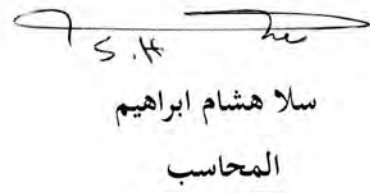 S.H
سلا هشام ابراهيم
المحاسب